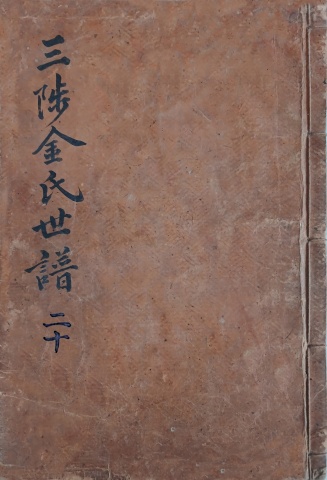 三陟金氏世譜
二十